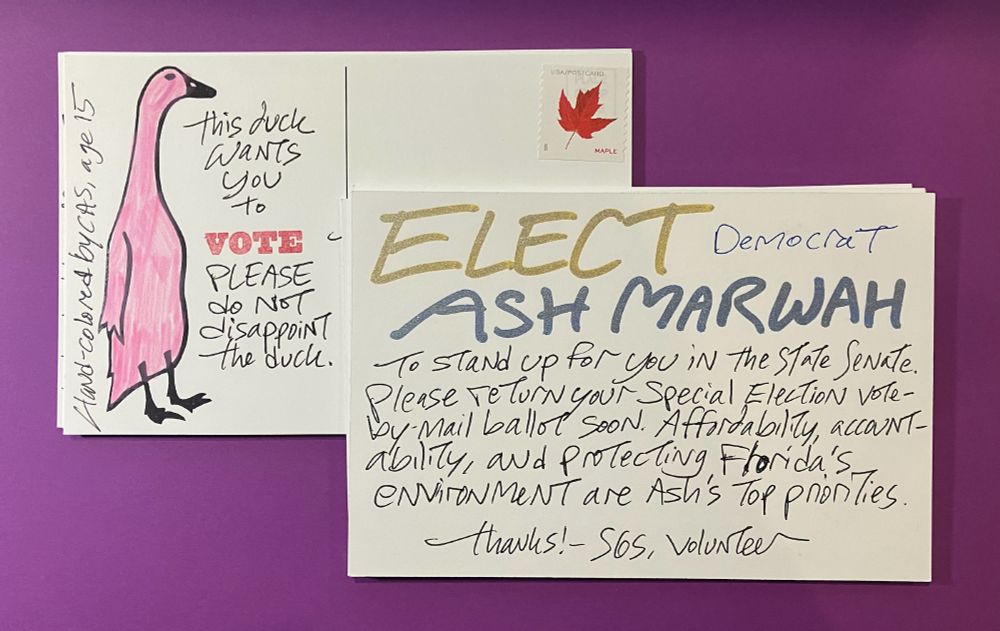 Hand-colored by CAS, age 15
this duck
WANTS
you
to
VOTE
PLEASE
do NOT
disappoint
the duck.
USA/POSTCARD
MAPLE
ELECT Democrat
ASH MARWAH
To stand up for you in the State Senate.
Please return your Special Election vote-
by-mail ballot soon. Affordability, account-
ability, and protecting Florida's
environment are Ash's top priorities.
thanks! - SGS, Volunteer